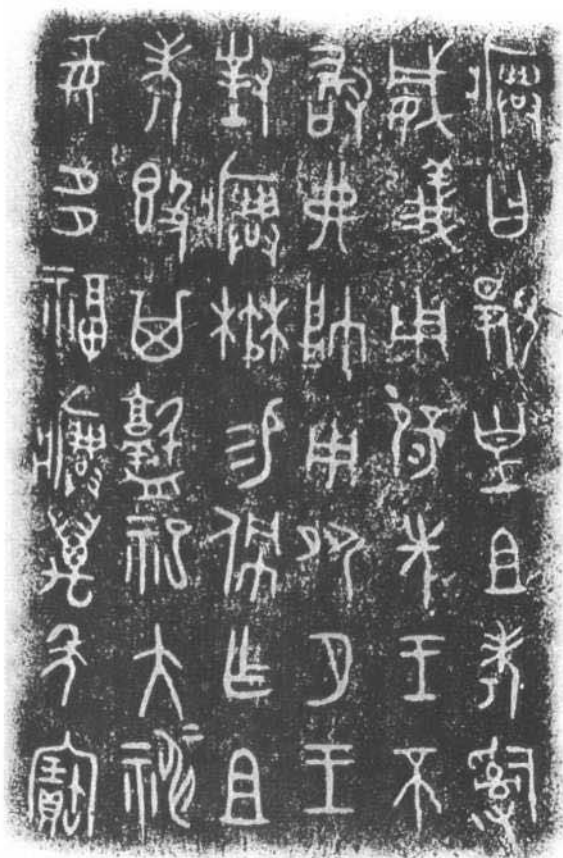 𤼈曰覭皇且考𤔲
威義用辟先王不
敢弗帥用夙夕王
對𤼈楙易佩乍且
考簋其祀大神=
妥多福𤼈萬年寶